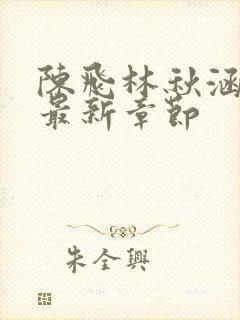 陳飛林秋涵
最新章節
朱全興